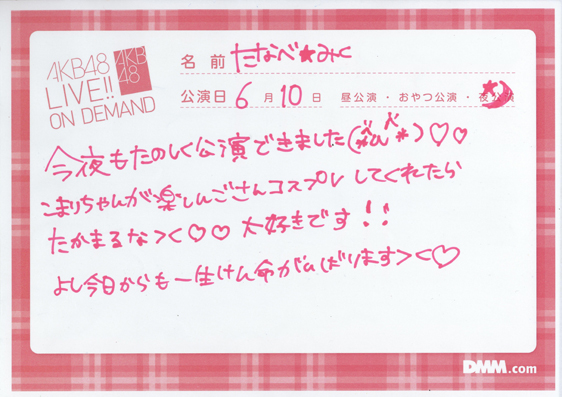 AKB48
LIVE!!
ON DEMAND
AKB
48
名前 たなべ★みく
公演日 6月10日 昼公演・おやつ公演・夜公演
今夜もたのしく公演できました(*^ω^*)♡♡
こまりちゃんが楽しんごさんコスプレしてくれたら
たかまるな><♡♡大好きです!!
よし今日からも一生けん命がんばります><♡
DMM.com